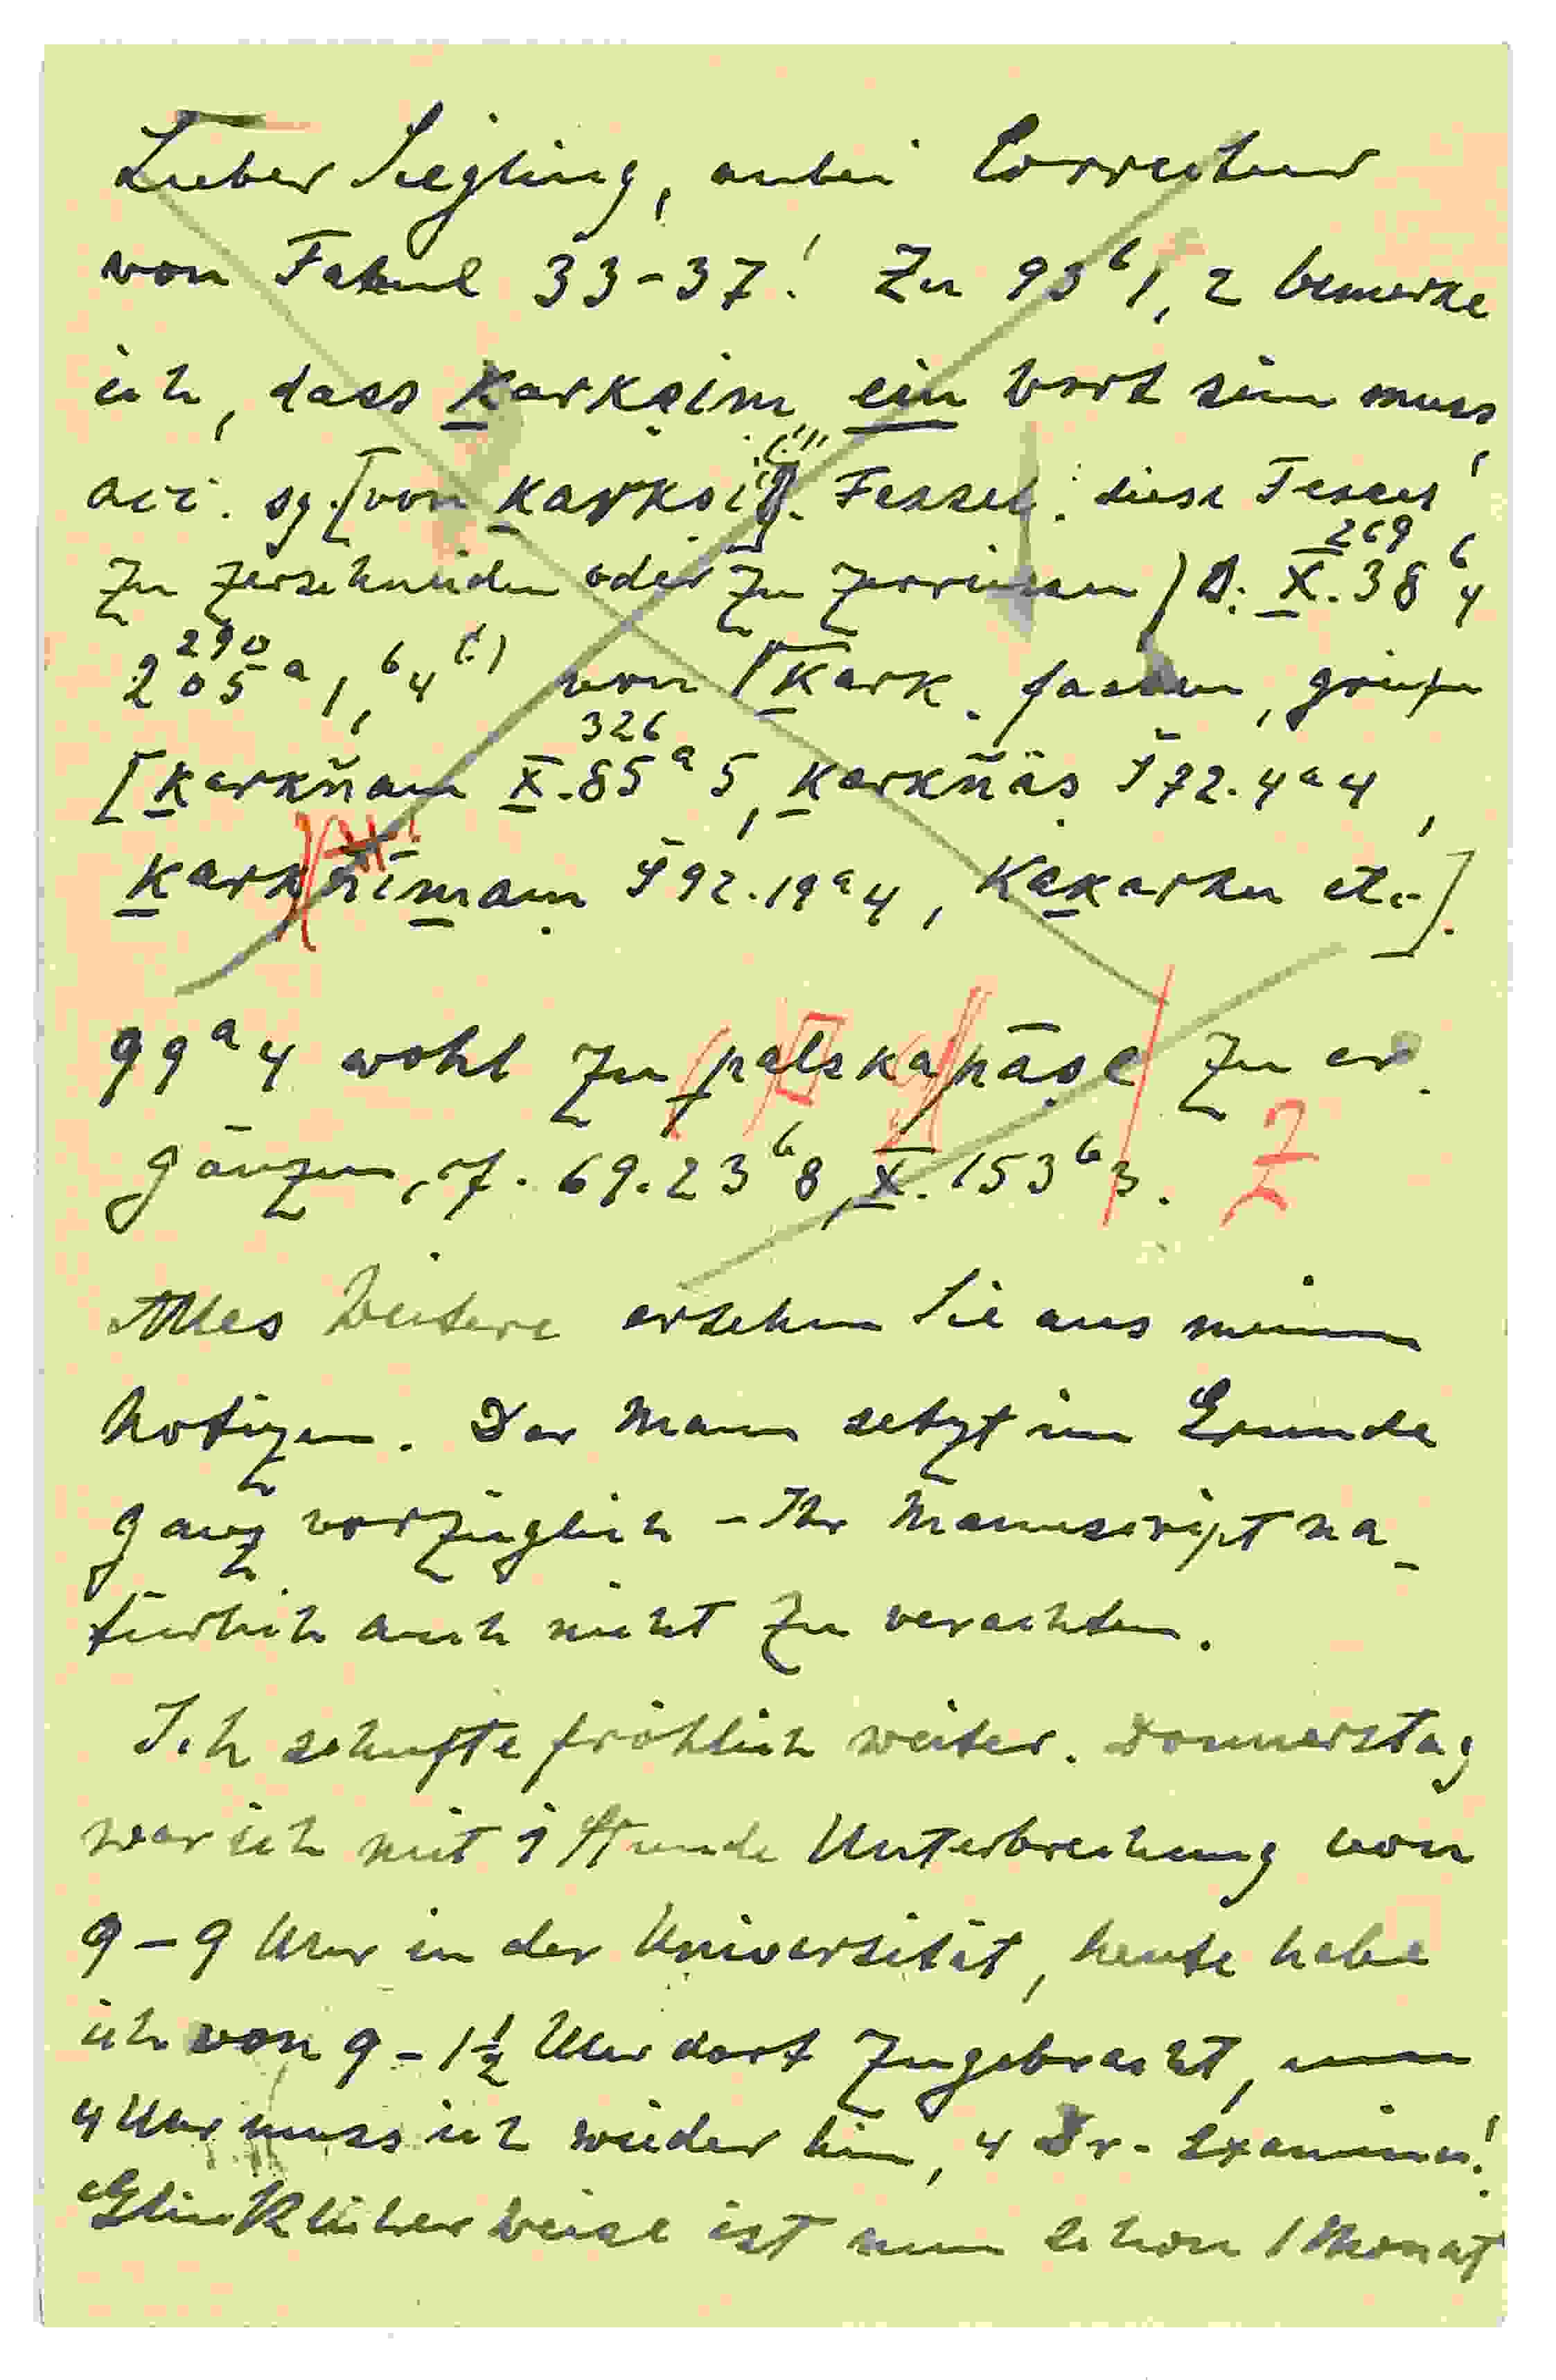 Lieber Siegling, anbei Correctur
von Tafel 33-37! Zu 93ᵇ1,2 bemerke
ich, dass ḵarkṣim ein Wort sein muss,
acc. sg. [von ḵarkṣi]. Fessel: diese Fessel
zu zerschneiden oder zu zerreissen) S. X̱.38ᵇ4
269
205ᵃ1,ᵇ4(!) von √ḵark. fassen, greifen
290
[ḵarkñam X̱.85ᵃ5, ḵarkñäṣ Š72.4ᵃ4,
326
ḵarkñimaṃ Š92.19ᵃ4, Kaḵarku etc.]
99ᵃ4 wohl zu palskapāṣe zu er-
gänzen, cf. 69.23ᵇ8, X̱.153ᵇ3.
Alles Weitere ersehen Sie aus meinen
Notizen. Der Mann setzt im Grunde
ganz vorzüglich - Ihr Manuscript na-
türlich auch nicht zu verachten.
Ich schufte fröhlich weiter. Donnerstag
war ich mit 1 Stunde Unterbrechung von
9-9 Uhr in der Universität, heute habe
ich von 9-1½ Uhr dort zugebracht, um
4 Uhr muss ich wieder hin, 4 Dr.-Examina!
Glücklicherweise ist nun schon 1 Monat